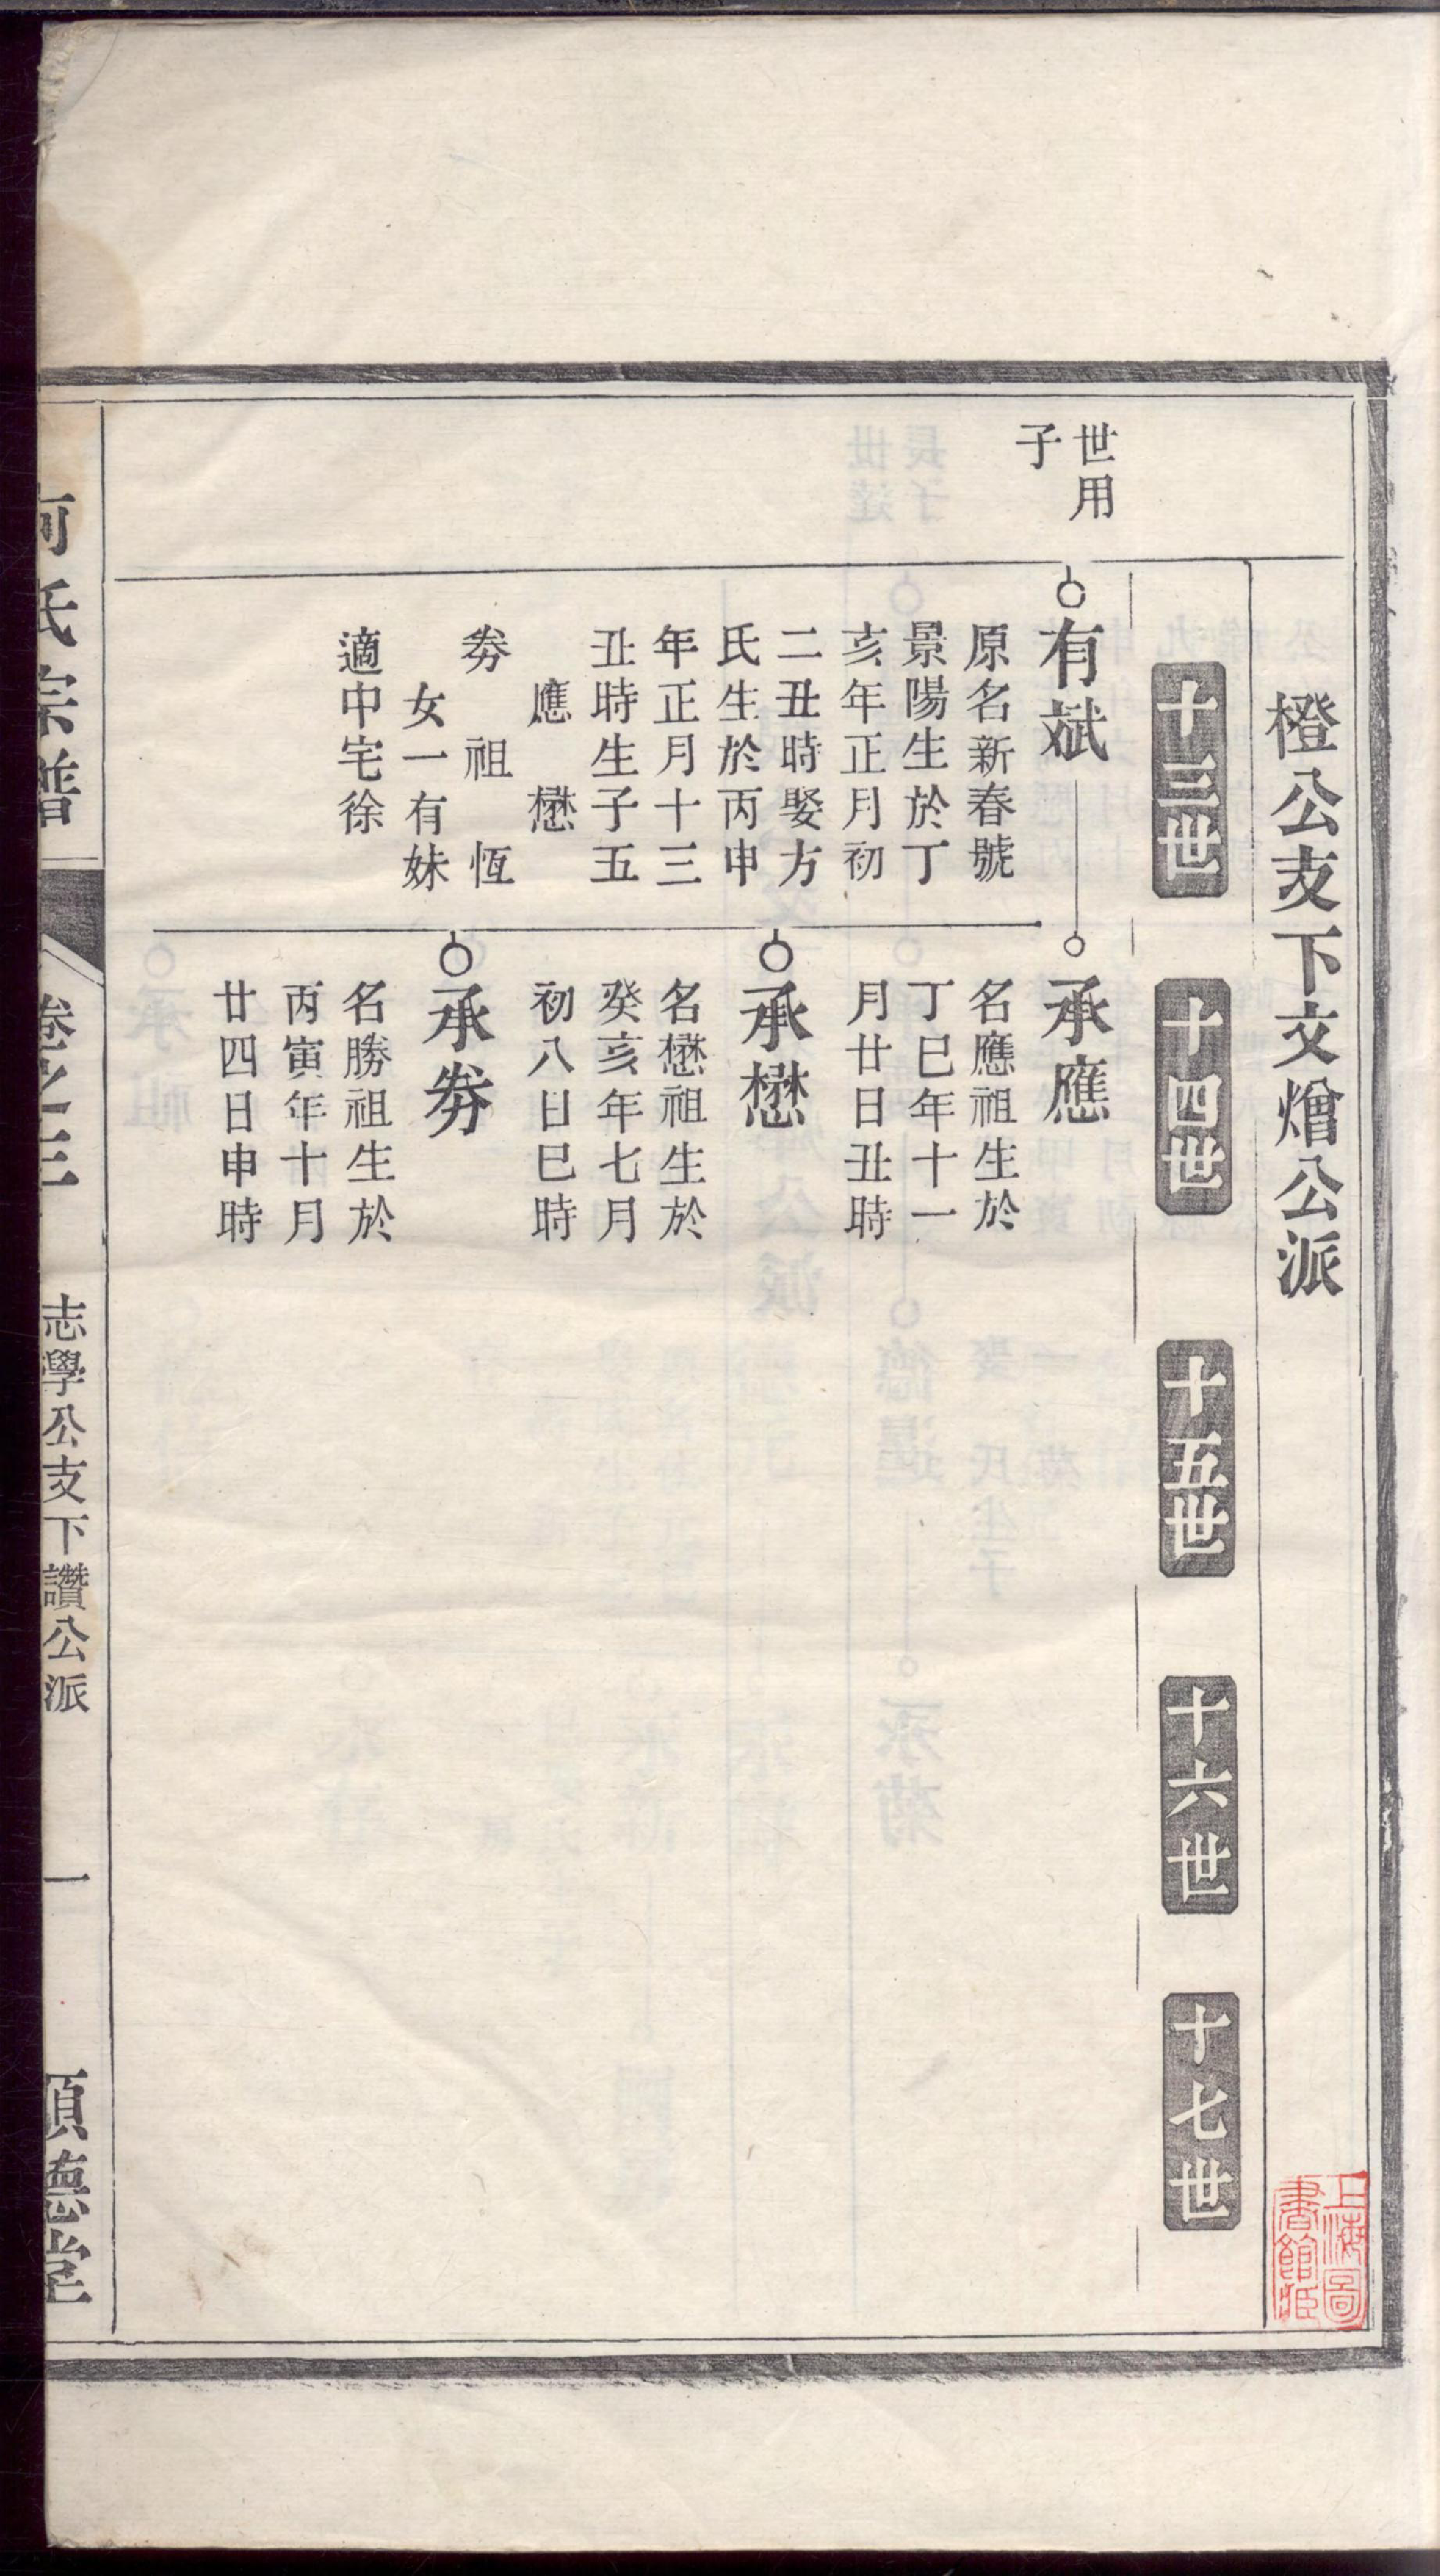 橙公支下文燴公派
十三世
十四世
十五世
十六世
十七世
世用
子
有斌
原名新春號
景陽生於丁
亥年正月初
二丑時娶方
氏生於丙申
年正月十三
丑時生子五
應 懋
劵 祖 恆
女一有妹
適中宅徐
承應
名應祖生於
丁巳年十一
月廿日丑時
承懋
名懋祖生於
癸亥年七月
初八日巳時
承劵
名勝祖生於
丙寅年十月
廿四日申時
何氏宗譜
卷之三
志學公支下讚公派
一
順德堂
上海圖
書館藏